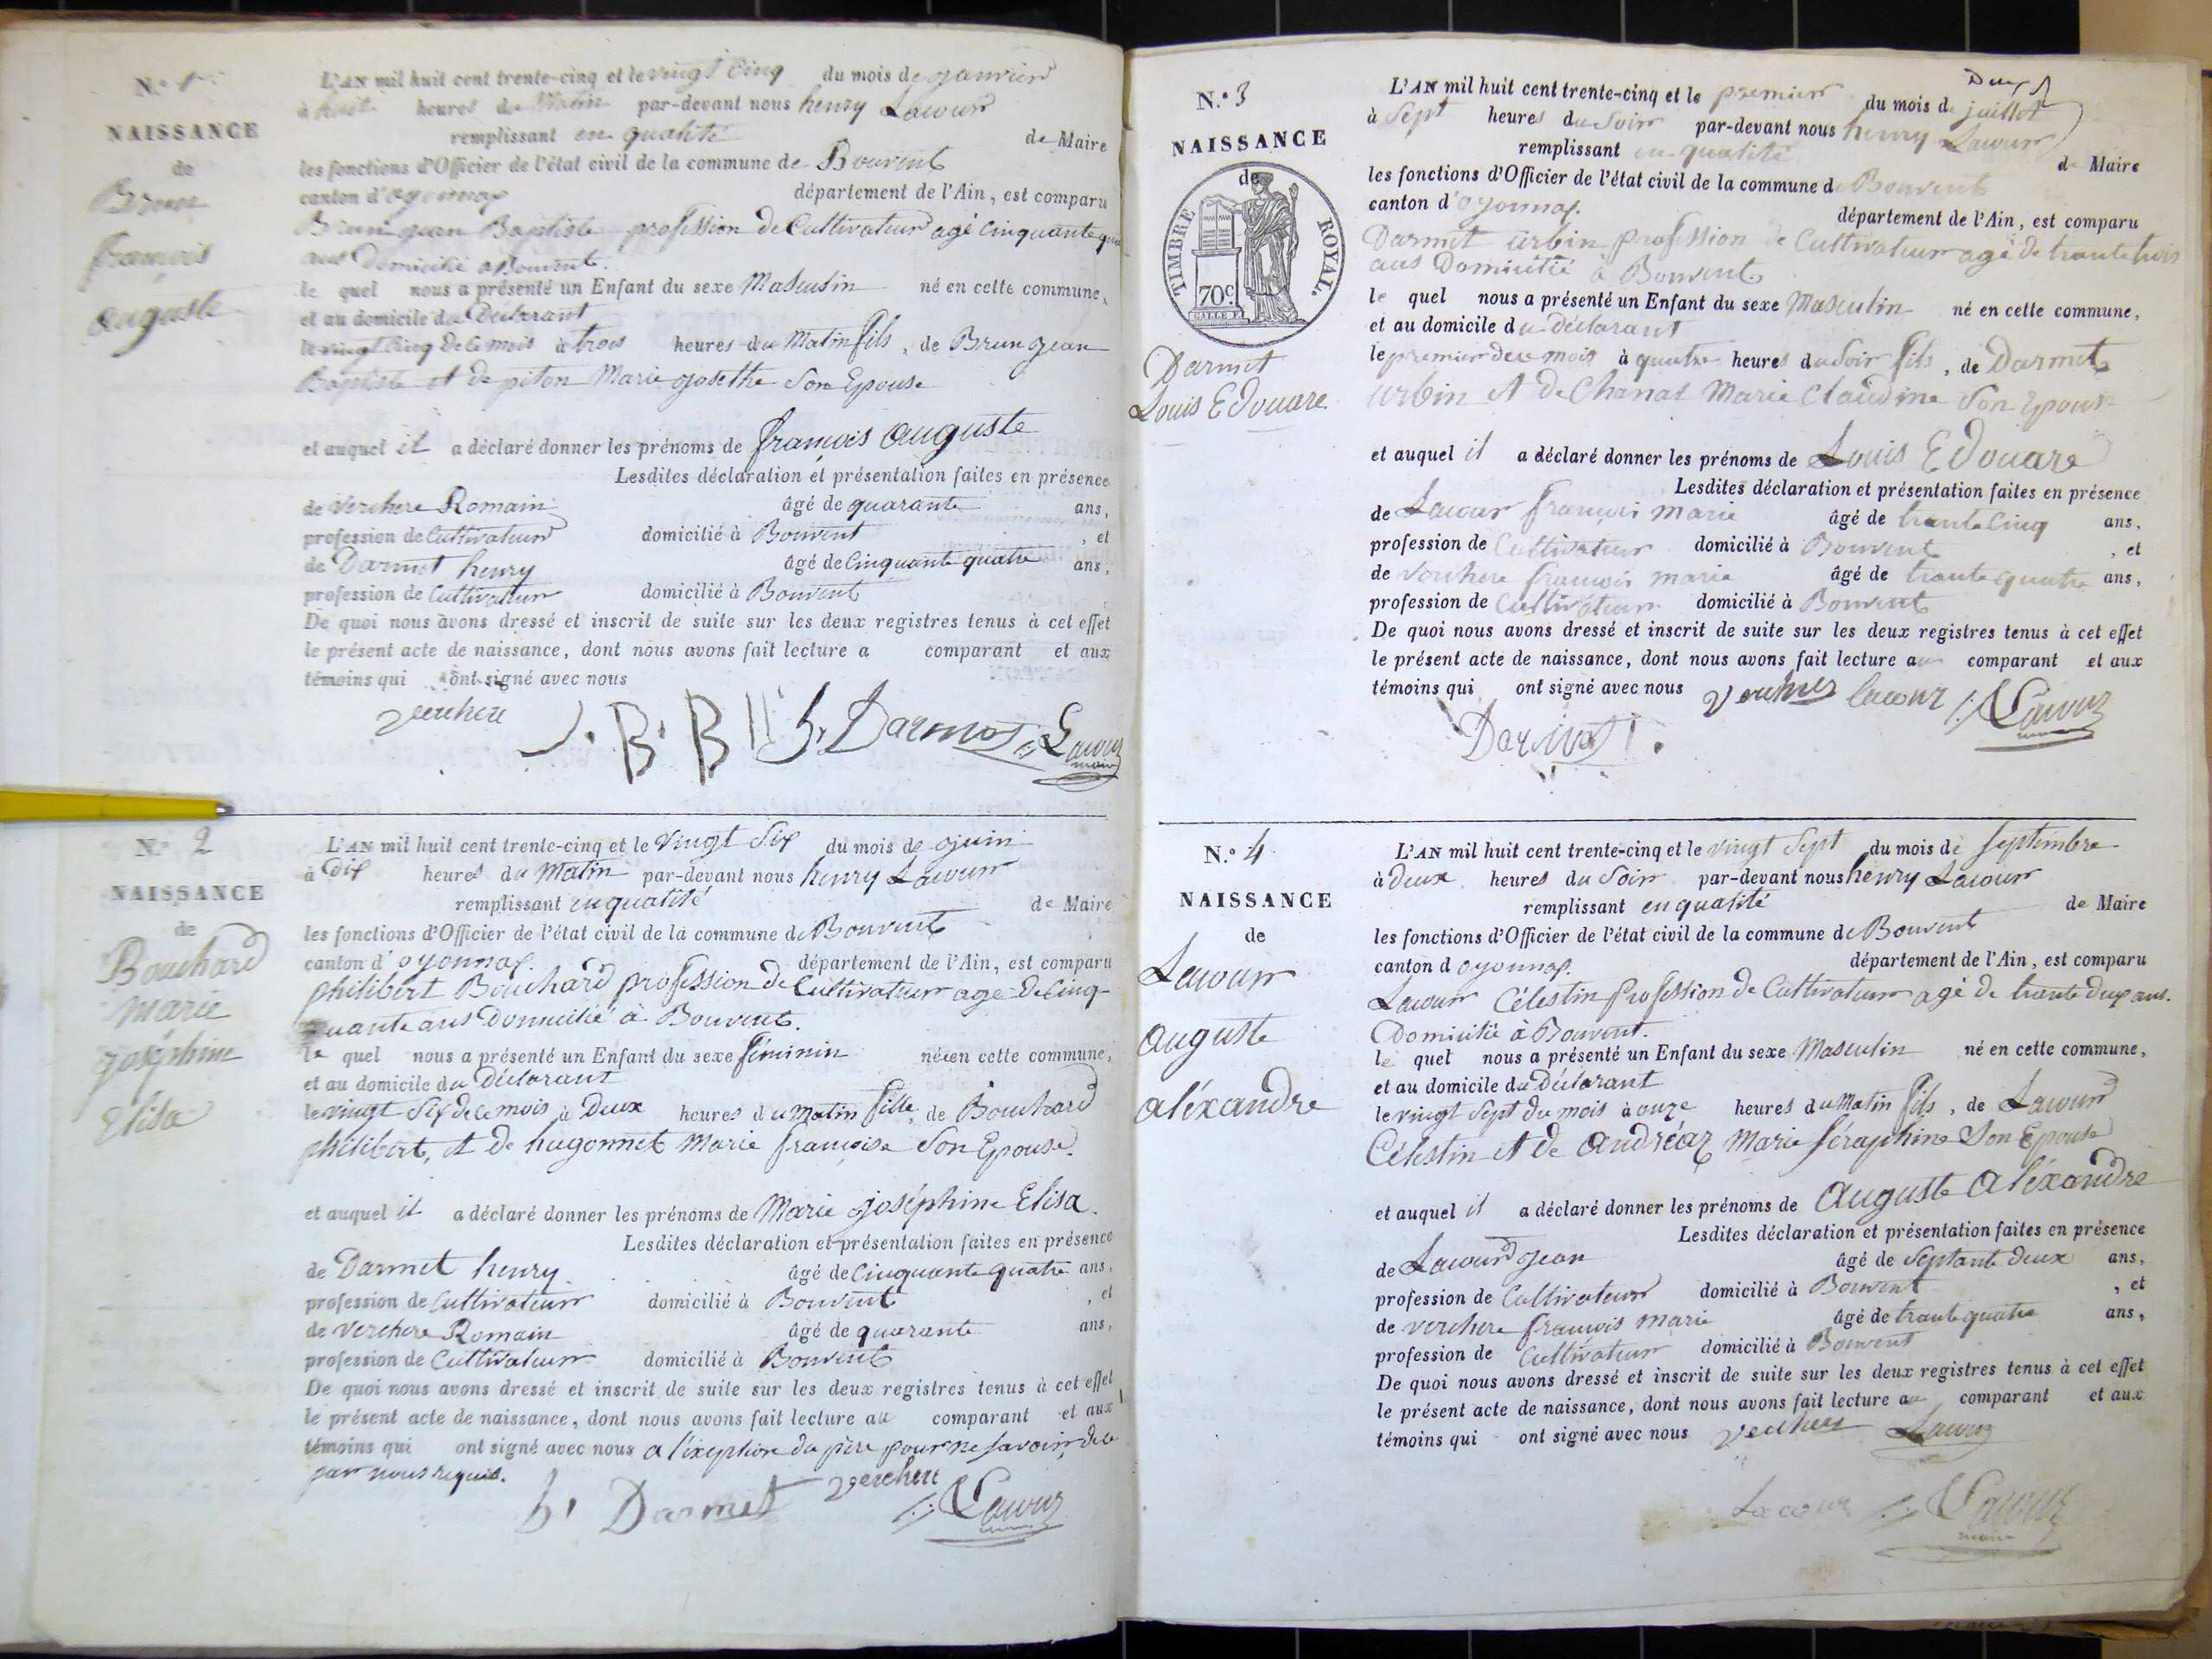 N.° 1
NAISSANCE
de
Brun
françois
auguste
L'AN mil huit cent trente-cinq et le vingt Cinq du mois de janvier
à huit heures du Matin par-devant nous henry Lacour
remplissant en qualité de Maire
les fonctions d'Officier de l'état civil de la commune de Bouvent
canton d'oyonnax département de l'Ain, est comparu
Brun jean Baptiste profession de Cultivateur agé Cinquante
ans Domicilié a Bouvent.
le quel nous a présenté un Enfant du sexe Masculin né en cette commune,
et au domicile du Déclarant
le vingt Cinq de ce mois à trois heures du Matin fils, de Brun jean
Baptiste et de piton Marie josethe Son Epouse
et auquel il a déclaré donner les prénoms de françois auguste
Lesdites déclaration et présentation faites en présence
de Verchere Romain âgé de quarante ans,
profession de Cultivateur domicilié à Bouvent, et
de Darmet henry âgé de Cinquante quatre ans,
profession de Cultivateur domicilié à Bouvent
De quoi nous avons dressé et inscrit de suite sur les deux registres tenus à cet effet
le présent acte de naissance, dont nous avons fait lecture a comparant et aux
témoins qui ont signé avec nous
verchere J. B. B h. Darmet Lacour
maire
N.° 2
NAISSANCE
de
Bouchard
marie
joséphine
Elisa
L'AN mil huit cent trente-cinq et le vingt Six du mois de juin
à Dix heures du Matin par-devant nous henry Lacour
remplissant en qualité de Maire
les fonctions d'Officier de l'état civil de la commune de Bouvent
canton d'oyonnax. département de l'Ain, est comparu
philibert Bouchard profession de Cultivateur age de Cinq-
quante ans Domicilié à Bouvent.
le quel nous a présenté un Enfant du sexe féminin né en cette commune,
et au domicile du Déclarant
le vingt Six de ce mois à Deux heures du matin fille, de Bouchard
philibert, et de hugonnet Marie françoise Son Epouse.
et auquel il a déclaré donner les prénoms de Marie joséphine Elisa.
Lesdites déclaration et présentation faites en présence
de Darmet henry. âgé de Cinquante quatre ans,
profession de Cultivateur domicilié à Bouvent, et
de Verchere Romain âgé de quarante ans,
profession de Cultivateur domicilié à Bouvent
De quoi nous avons dressé et inscrit de suite sur les deux registres tenus à cet effet
le présent acte de naissance, dont nous avons fait lecture au comparant et aux
témoins qui ont signé avec nous a l'exeption du père pour ne savoir, de ce
par nous requis.
h. Darmet verchere Lacour
N.° 3
NAISSANCE
de
TIMBRE ROYAL.
70c.
Darmet
Louis Edouare
Deux
L'AN mil huit cent trente-cinq et le premier du mois de juillet
à Sept heures du Soir par-devant nous henry Lacour
remplissant en qualité de Maire
les fonctions d'Officier de l'état civil de la commune de Bouvent
canton d'oyonnax. département de l'Ain, est comparu
Darmet urbin profession de Cultivateur agé de trante trois
ans Domicilié à Bouvent
le quel nous a présenté un Enfant du sexe Masculin né en cette commune,
et au domicile du déclarant
le premier de ce mois à quatre heures du Soir fils, de Darmet
urbin et de Chanal Marie Claudine Son Epouse
et auquel il a déclaré donner les prénoms de Louis Edouare
Lesdites déclaration et présentation faites en présence
de Lacour françois marie âgé de trante Cinq ans,
profession de Cultivateur domicilié à Bouvent, et
de Verchere françois marie âgé de trante quatre ans,
profession de Cultivateur domicilié à Bouvent
De quoi nous avons dressé et inscrit de suite sur les deux registres tenus à cet effet
le présent acte de naissance, dont nous avons fait lecture au comparant et aux
témoins qui ont signé avec nous lacour Lacour
Darmet
N.° 4
NAISSANCE
de
Lacour
auguste
aléxandre
L'AN mil huit cent trente-cinq et le vingt Sept du mois de Septembre
à Deux heures du Soir par-devant nous henry Lacour
remplissant en qualité de Maire
les fonctions d'Officier de l'état civil de la commune de Bouvent
canton d oyonnax. département de l'Ain, est comparu
Lacour Célestin profession de Cultivateur agé de trante Deux ans.
Domicilié à Bouvent.
le quel nous a présenté un Enfant du sexe Masculin né en cette commune,
et au domicile du Déclarant
le vingt Sept du mois à onze heures du Matin fils, de Lacour
Célestin et de andréaz Marie Séraphine Son Epouse
et auquel il a déclaré donner les prénoms de auguste aléxandre
Lesdites déclaration et présentation faites en présence
de Lacour jean âgé de Septante Deux ans,
profession de Cultivateur domicilié à Bouvent, et
de Verchere françois marie âgé de trante quatre ans,
profession de Cultivateur domicilié à Bouvent
De quoi nous avons dressé et inscrit de suite sur les deux registres tenus à cet effet
le présent acte de naissance, dont nous avons fait lecture au comparant et aux
témoins qui ont signé avec nous Lacour
Lacour Lacour
maire